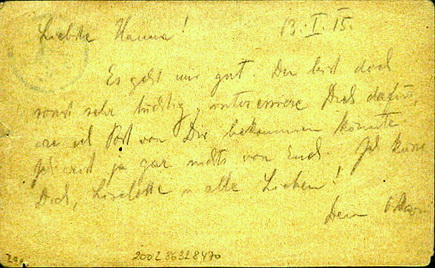 Liebste Hanna! 13. I. 15.
Es geht uns gut. Du bist doch
sonst sehr tüchtig, interessiere Dich dafür,
wie ich Post von Dir bekommen könnte.
ja gar nichts von Euch. Ich küsse
Dich, Liselotte u alle Lieben!
Dein
200286328470